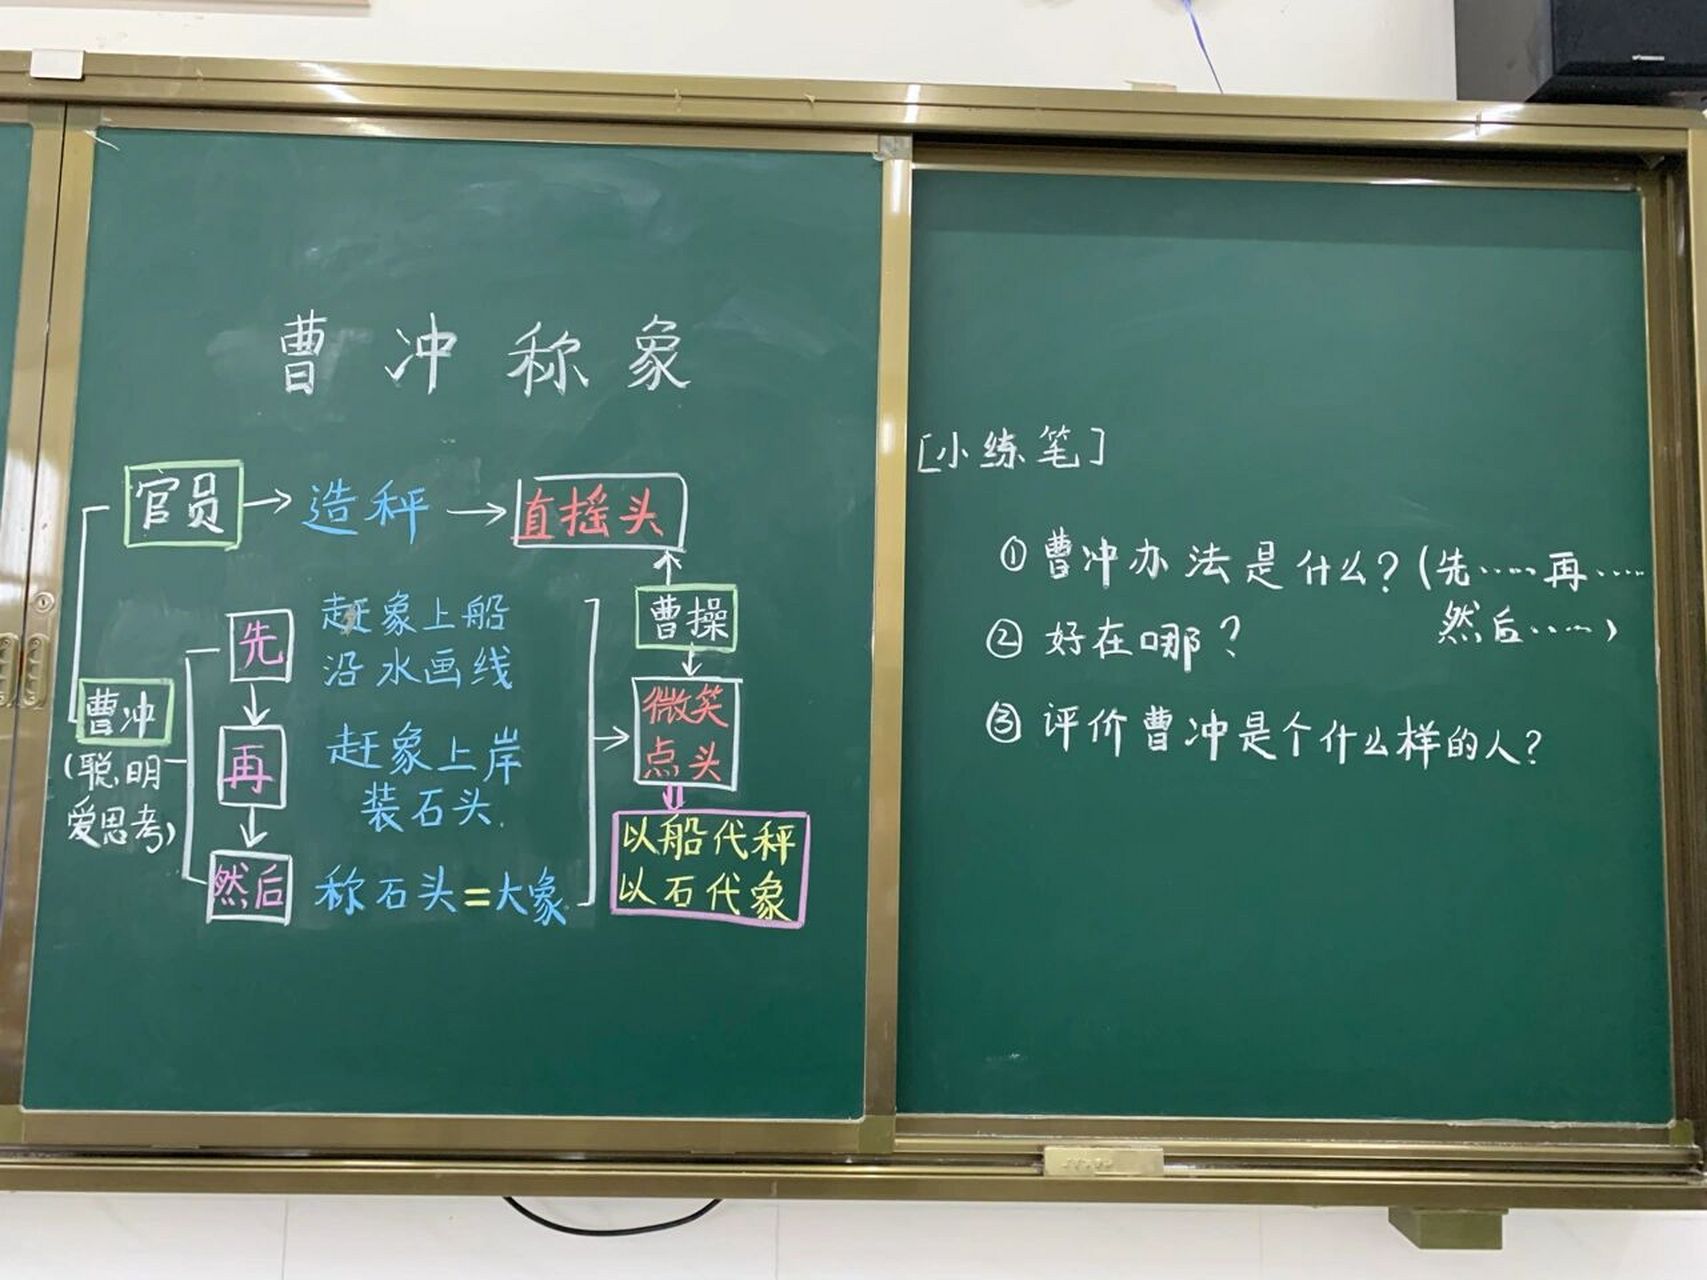 曹冲称象
官员→造秤→直摇头
曹操
先 赶象上船
沿水画线
曹冲
(聪明
爱思考)
再 赶象上岸
装石头.
微笑
点头
然后 称石头=大象
以船代秤
以石代象
[小练笔]
①曹冲办法是什么?(先……再……
然后……)
②好在哪?
③评价曹冲是个什么样的人?